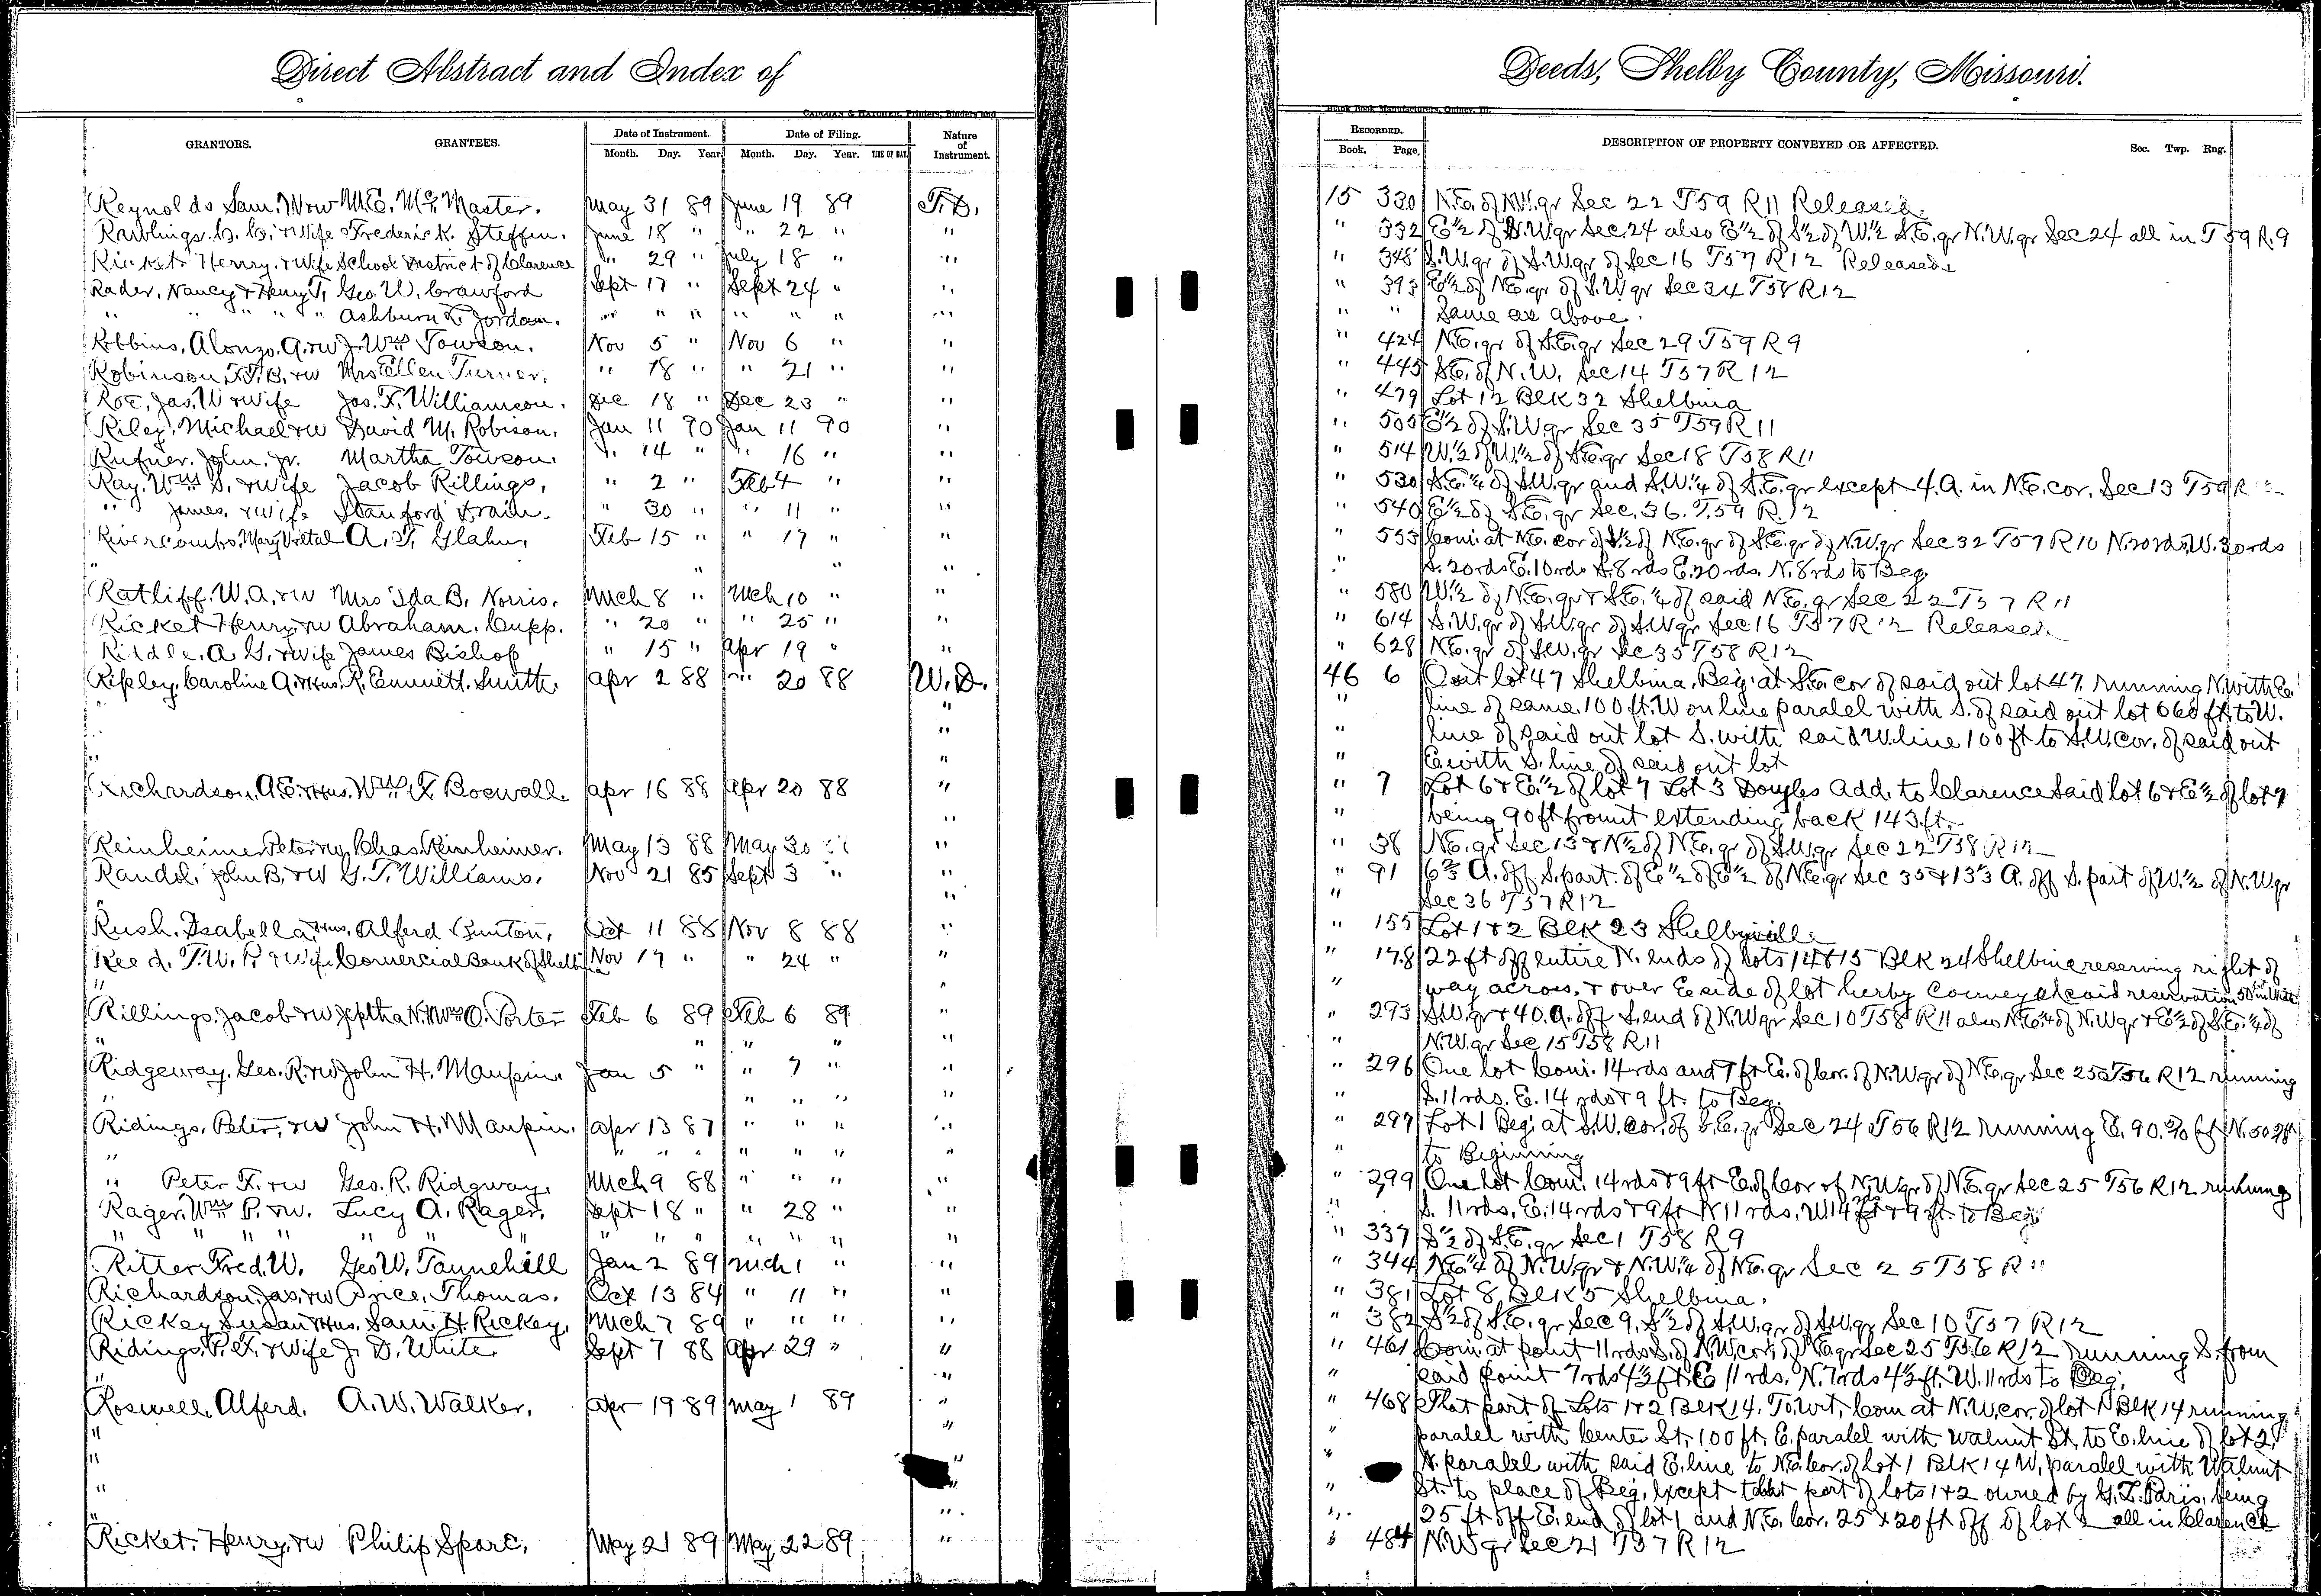 Direct Abstract and Index of Deeds, Shelby County, Missouri.
CADOGAN & HATCHER, Printers, Binders and Blank Book Manufacturers, Quincy, Ill.
GRANTORS. GRANTEES. Date of Instrument. Date of Filing. Nature of Instrument. RECORDED. DESCRIPTION OF PROPERTY CONVEYED OR AFFECTED. Sec. Twp. Rng.
Month. Day. Year. Month. Day. Year. TIME OF DAY. Book. Page.
Reynolds Sam. M. M.E. McMaster. May 31 89 June 19 89 T.D. 15 330 N.E. of N.W. qr Sec 22 T59 R11 Released
Rawlings. & Wife Frederick Steffen. June 18 " " 22 " " " 332 E 1/2 of S.W. qr Sec. 24 also E 1/2 of S 1/2 of W. 1/2 S.E. qr N.W. qr Sec 24 all in T59 R.9
Ricket Henry. & Wife School District of Clarence " 29 " July 18 " " " 348 S.W. qr of S.W. qr of Sec 16 T57 R12 Released
Rader, Nancy & Henry T. Geo. W. Crawford Sept 17 " Sept 24 " " " 393 E 1/2 of N.E. qr of S.W. qr Sec 34 T58 R12
" " " " " Ashburn L. Jordan. " " " " " " " " " Same as above.
Robbins, Alonzo. A. & W J. Wm Towson. Nov 5 " Nov 6 " " " 424 N.E. qr of S.E. qr Sec 29 T59 R9
Robinson, & W Mrs Ellen Turner. " 18 " " 21 " " " 445 S.E. of N.W. Sec 14 T57 R12
Roe, Jas. W & Wife Jas. F. Williamson. Dec 18 " Dec 23 " " " 479 Lot 12 Blk 32 Shelbina
Riley, Michael & W David M. Robison. Jan 11 90 Jan 11 90 " " 505 E 1/2 of S.W. qr Sec 35 T59 R11
Rufner. John. Jr. Martha Towson. " 14 " " 16 " " " 514 W. 1/2 of W. 1/2 of S.E. qr Sec 18 T58 R11
Ray. Wm S. & Wife Jacob Rillings, " 2 " Feb 4 " " " 530 S.E. 1/4 of S.W. qr and S.W. 1/4 of S.E. qr except 4.A. in N.E. cor. Sec 13 T59 R
" James. & Wife Stanford Drain. " 30 " " 11 " " " 540 E 1/2 of S.E. qr Sec. 36. T.59 R.12
Rivercombs, Mary V. et al A. T. Glahn. Feb 15 " " 17 " " " 553 Com. at N.E. cor of S 1/2 of N.E. qr of S.E. qr of N.W. qr Sec 32 T57 R10 N. 20 rds, W. 30 rds
" " " " " S. 20 rds E. 10 rds S. 8 rds E. 20 rds. N. 8 rds to Beg.
Ratliff. W. A. & W Mrs Ida B. Norris. Mch 8 " Mch 10 " " " 580 W. 1/2 of N.E. qr & S.E. 1/4 of said N.E. qr Sec 22 T57 R11
Ricket Henry & W Abraham. Cupp. " 20 " " 25 " " " 614 S.W. qr of S.W. qr of S.W. qr Sec 16 T57 R12 Released
Riddle. A G. & Wife James Bishop " 15 " Apr 19 " " " 628 N.E. qr of S.W. qr Sec 35 T58 R12
Ripley, Caroline A. & Hus. R. Emmett Smith. Apr 2 88 " 20 88 W.D. 46 6 Out lot 47 Shelbina, Beg. at S.E. cor of said out lot 47, running N. with E.
" " line of same. 100 ft. W on line paralel with S. of said out lot 660 ft. to W.
" " line of said out lot S. with said W. line 100 ft to S.W. cor. of said out
" " " E. with S. line of said out lot
Richardson, A.E. & Hus. Wm F Boswell Apr 16 88 Apr 20 88 " " 7 Lot 6 & E. 1/2 of lot 7 Lot 3 Doyles Add. to Clarence said lot 6 & E 1/2 of lot 7
" " being 90 ft fromt extending back 143 ft.
Reinheimer Peter & W. Chas. Reinheimer. May 13 88 May 30 88 " " 38 N.E. qr Sec 13 & N 1/2 of N.E. qr of S.W. qr Sec 22 T58 R12
Randol. John B. & W G. T. Williams. Nov 21 85 Sept 3 " " " 91 A. off S. part of E 1/2 of E 1/2 of N.E. qr Sec 35 & A. off S. part of W. 1/2 of N.W. qr
" " " Sec 36 T57 R12
Rush. Isabella & Hus. Alferd Bunton, Oct 11 88 Nov 8 88 " " 155 Lot 1 & 2 Blk 23 Shelbyville
Reed. T.W. P. & Wife Comercial Bank of Shelbina Nov 17 " " 24 " " " 178 22 ft off entire N. ends of lots 14 & 15 Blk 24 Shelbina reserving right of
" " " way across, & over E side of lot herby Conveyed said reservation 50 in Width
Rillings. Jacob & W Jeptha N. & Wm O. Porter Feb 6 89 Feb 6 89 " " 293 S.W. qr & 40. A. off S. end of N.W. qr Sec 10 T58 R11 also N.E. 1/4 of N.W qr & E 1/2 of S.E. 1/4 of
" " " " " " N.W. qr Sec 15 T58 R11
Ridgeway. Geo. R. & W John H. Maupin. Jan 5 " " 7 " " " 296 One lot Com. 14 rds and 9 ft E. of Cor. of N.W qr of N.E. qr Sec 25 T56 R12 running
" " " " " " S. 11 rds. E. 14 rds & 9 ft. to Beg.
Ridings, Peter, & W John H. Maupin. Apr 13 87 " " " " " 297 Lot 1 Beg. at S.W. cor. of S.E. qr Sec 24 T56 R12 running E. 90. ft N. 50
" " " " " " " " " to Beginning
" Peter F. & W Geo. R. Ridgway. Mch 9 88 " " " " " 299 One lot Com. 14 rds & 9 ft E. of Cor of N.W qr of N.E. qr Sec 25 T56 R12 running
Rager. Wm P. & W. Lucy A. Rager. Sept 18 " " 28 " " " S. 11 rds, E. 14 rds & 9 ft N 11 rds, W. 14 & 9 ft. to Beg
" " " " " " " " " " " " " " " 337 S 1/2 of S.E. qr Sec 1 T58 R9
Ritter Fred. W. Geo W. Tannehill Jan 2 89 Mch 1 " " " 344 N.E. 1/4 of N.W. qr & N.W. 1/4 of N.E. qr Sec 25 T58 R11
Richardson, Jas. & W Price, Thomas. Oct 13 84 " 11 " " " 381 Lot 8 Blk 5 Shelbina.
Rickey Susan & Hus. Saml H. Rickey. Mch 7 89 " " " " " 382 S 1/2 of S.E. qr Sec 9, S 1/2 of S.W. qr of S.W. qr Sec 10 T57 R12
Ridings, P. F. & Wife J. D. White Sept 7 88 Apr 29 " " " 461 Com at point 11 rds S. of N.W cor. of N.E. qr Sec 25 T56 R12 running S. from
" " " said point 7 rds ft. E 11 rds. N. 7 rds ft. W. 11 rds to Beg.
Roswell. Alferd. A. W. Walker. Apr 19 89 May 1 89 " " 468 That part of Lots 1 & 2 Blk 14. To. Wit, Com at N.W. cor. of lot 1 Blk 14 running
" " " paralel with Center St. 100 ft. E. paralel with Walnut St. to E. line of lot 2,
" " " N. paralel with said E. line to N.E. cor. of Lot 1 Blk 14 W. paralel with Walnut
" " " St. to place of Beg, except that part of lots 1 & 2 owned by G. L. Paris, being
" " " 25 ft off E. end of lot 1 and N.E. Cor. 25 x 20 ft off of lot 2 all in Clarence
Ricket. Henry & W Philip Spore, May 21 89 May 22 89 " " 484 N.W qr Sec 21 T57 R12